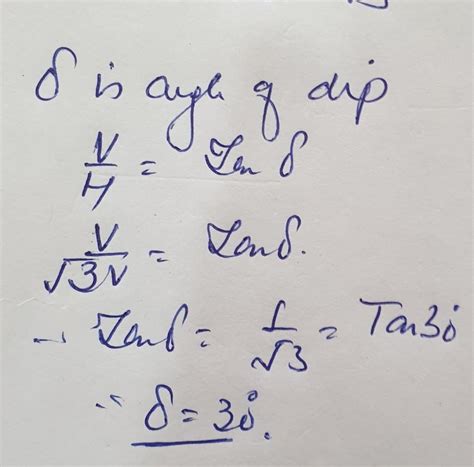 δ is angle of dip
V/H = Tan δ
V/√3V = Tan δ.
∴ Tan δ = 1/√3 = Tan 30°
∴ δ = 30°.